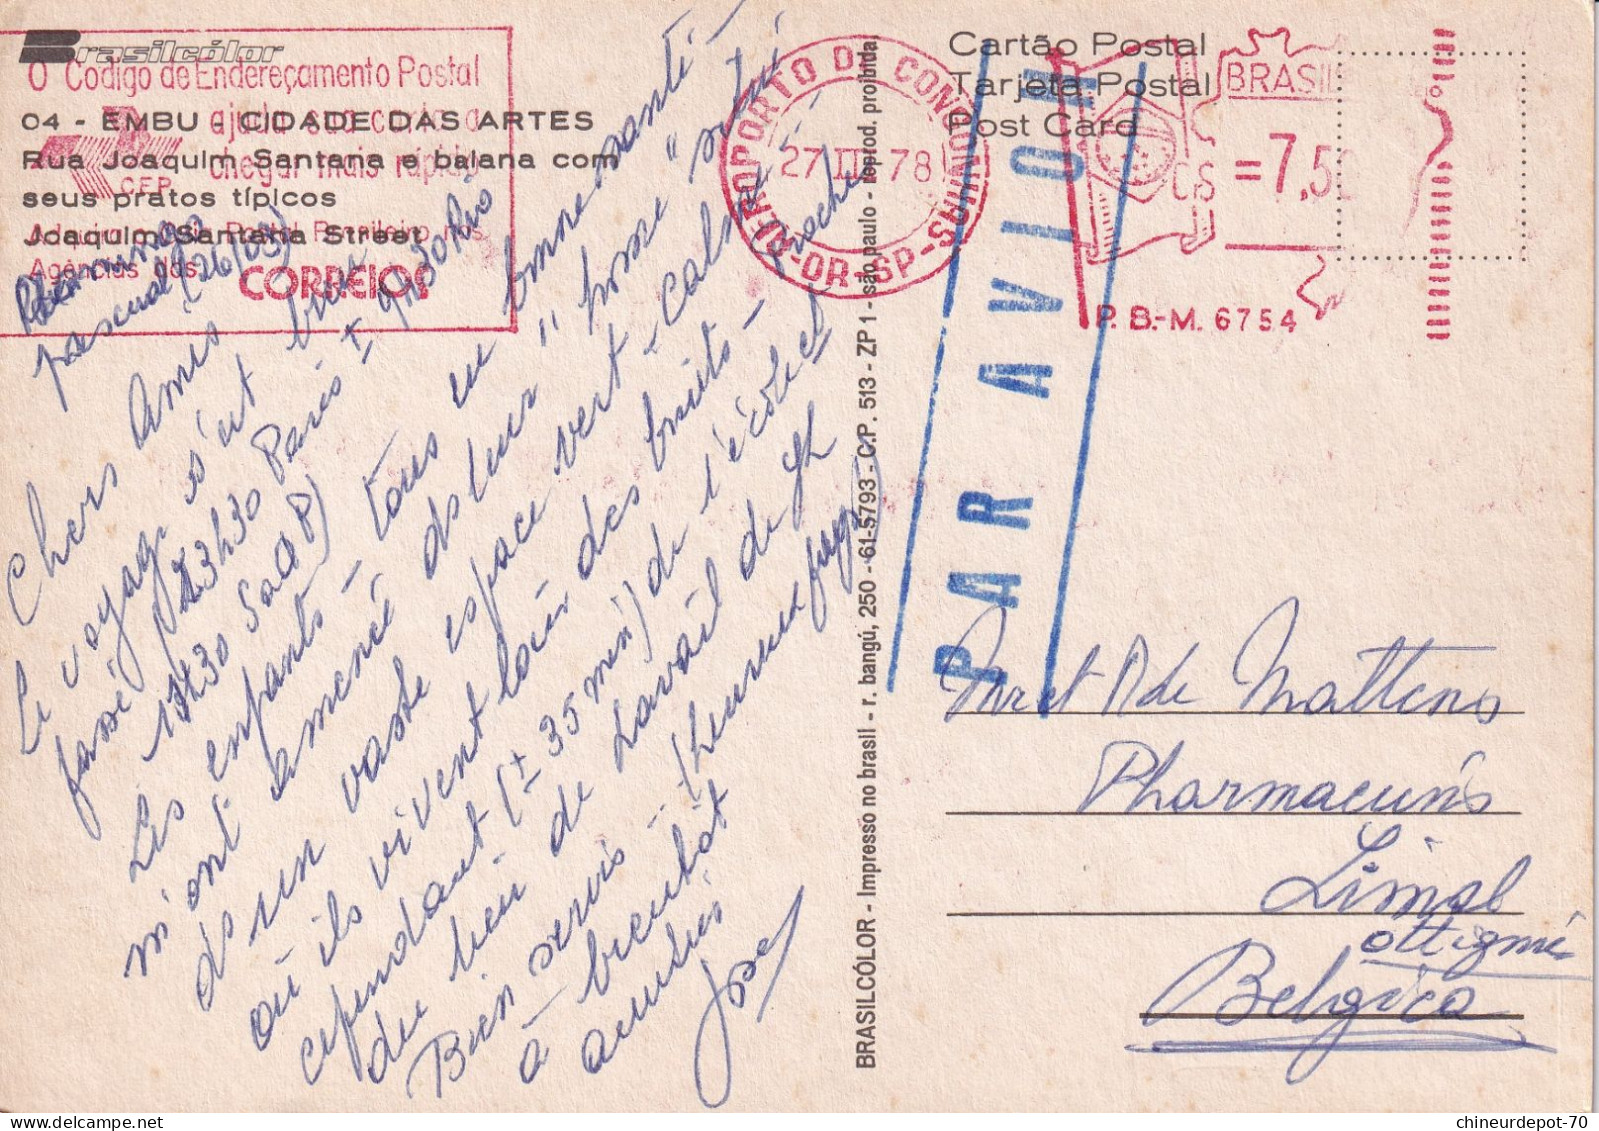 Brasilcólor
O Código de Endereçamento Postal
ajuda sua carta a
chegar mais rápido
CEP
Agências dos
CORREIOS
04 - EMBU - CIDADE DAS ARTES
Rua Joaquim Santana e baiana com
seus pratos típicos
Joaquim Santana Street
pascual (26/03)
Chers Amis
Le voyage s'est bien
passé / 23h30 Paris ± 9h30 Rio
11h30 Sao P)
Les enfants – tous en
m'ont amené ds leur "home" situé
ds un vaste espace vert – calme
où ils vivent loin des bruits –
cependant (± 35 min) de l'école et
du lieu de travail de
Bien servis –
à bientôt
amitiés
José
BRASILCÓLOR - Impresso no brasil - r. bangú, 250 - 61-5793 - C.P. 513 - ZP 1 - são paulo - Reprod. proibida.
Cartão Postal
Tarjeta Postal
Post Card
AEROPORTO DE CONGONHAS
27 III 78
DR-SP
BRASIL
=7,5
P.B.-M. 6754
PAR AVION
Mr et Mde Mattens
Pharmaciens
Limal
ottignie
Belgica
chineurdepot-70